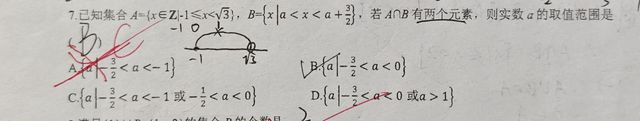 7.已知集合 A={x∈Z|-1≤x<√3}，B={x|a<x<a+3/2}，若 A∩B 有两个元素，则实数 a 的取值范围是
-1 0
(B) C
-1 √3
A.{a|-3/2<a<-1} B.{a|-3/2<a<0}
C.{a|-3/2<a<-1 或 -1/2<a<0} D.{a|-3/2<a<0 或 a>1}
的集合 B 的个数是